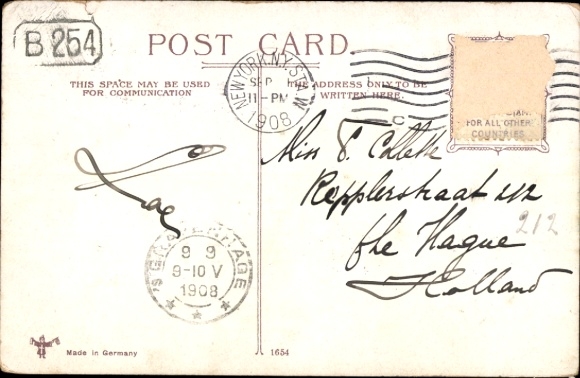 B 254
POST CARD
THIS SPACE MAY BE USED
FOR COMMUNICATION
THE ADDRESS ONLY TO BE
WRITTEN HERE.
NEW YORK, N.Y. STA. W
SEP
11-PM
1908
C
FOR ALL OTHER
COUNTRIES
Miss
Kepplerstraat 212
the Hague
Holland
212
'S GRAVENHAGE
9 9
9-10 V
1908
Made in Germany
1654